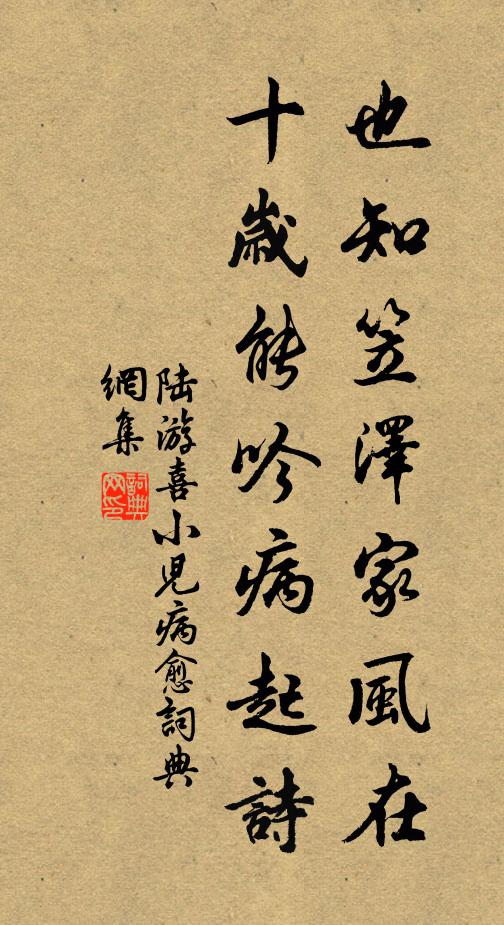 也知笠澤家風在
十歲能吟病起詩
陸游喜小児病愈詞典
網集
詞典
网印